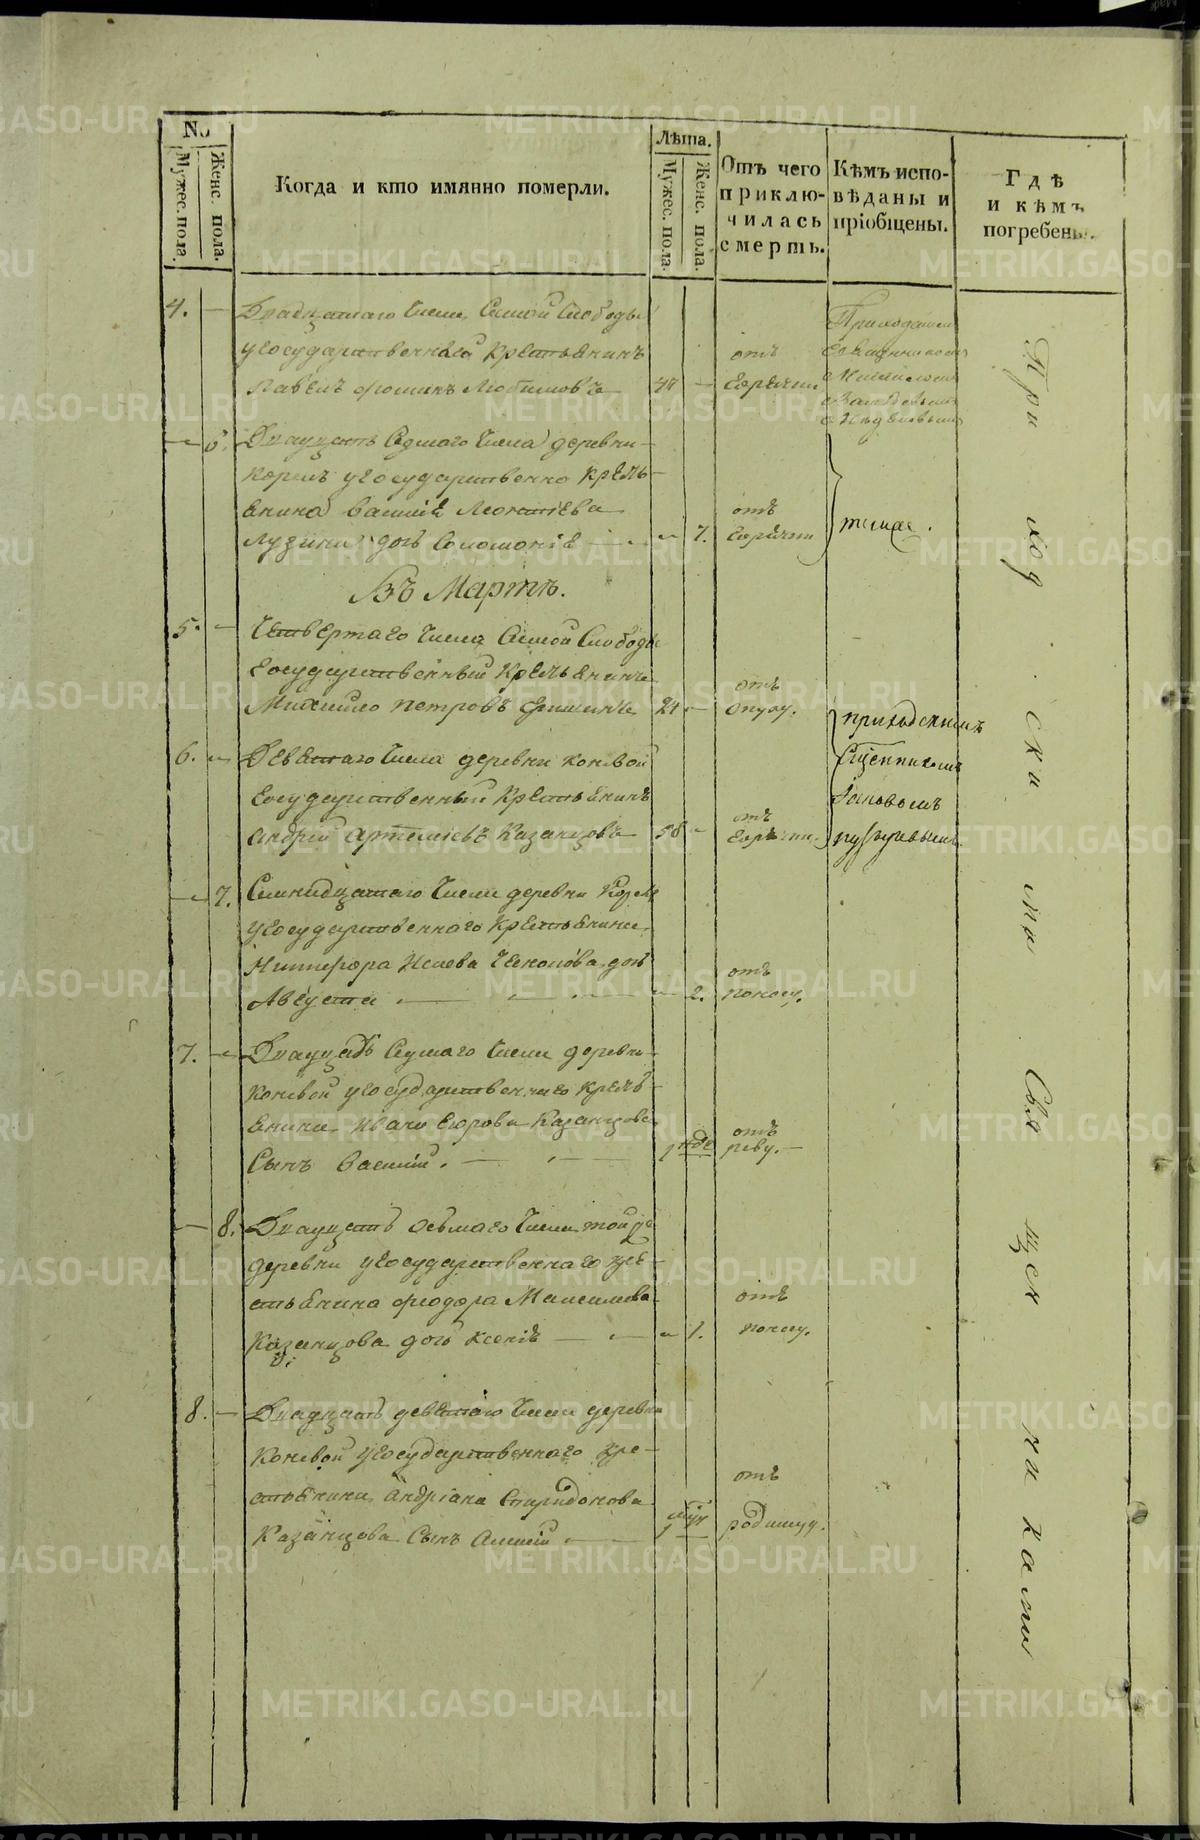 №
Мужес. пола.
Женс. пола.
Когда и кто имянно померли.
Лѣта.
Мужес. пола.
Женс. пола.
Отъ чего приклю-
чилась смерть.
Кѣмъ испо-
вѣданы и
пріобщены.
Гдѣ
и кѣмъ
погребены.
4. Двадцатаго Числа Самой Слободы
государственный Крестьянинъ
Павелъ Фоминъ Любимовъ
отъ
горячки
Приходскимъ
Священникомъ
Двадцать Седмаго Числа деревни
государственно Кресть-
янина Василія Леонтіева
дочь Соломонія 7.
отъ
горячки
тѣмже.
Въ Мартѣ.
5. Четвертаго Числа Самой Слободы
Государственный Крестьянинъ
Михайло Петровъ 24
отъ
опуху.
приходскимъ
Сщенникомъ
Іаковомъ
6. Девятаго Числа деревни Коневой
Государственный Крестьянинъ
Андрей Артеміевъ Казанцовъ 58
отъ
горячки
7. деревни
государственнаго Крестьянина
Никифора Исаева дочь
Августа 2.
отъ
поносу.
7. Двадцать Седмаго Числа деревни
Коневой государственнаго Кресть-
янина Ивана Егорова Казанцова
Сынъ Василій. 1 нде
отъ
реву.
8. Двадцать осьмаго Числа той же
деревни государственнаго кре-
стьянина Феодора Максимова
Казанцова дочь Ксенія 1.
отъ
поносу.
8. Двадцать девятаго Числа деревни
Коневой государственнаго кре-
стьянина Андріана Спиридонова
Казанцова Сынъ Алексій
отъ
родимцу.
При ход ски ми Свя щен ни ками
METRIKI.GASO-URAL.RU